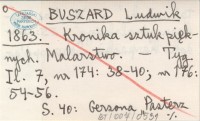 BUSZARD Ludwik
1863. Kronika sztuk pięk-
nych. Malarstwo. Tyg.
Il. 7, nr 174: 38-40; nr 176:
54-56.
S. 40: Gersona Pasterz